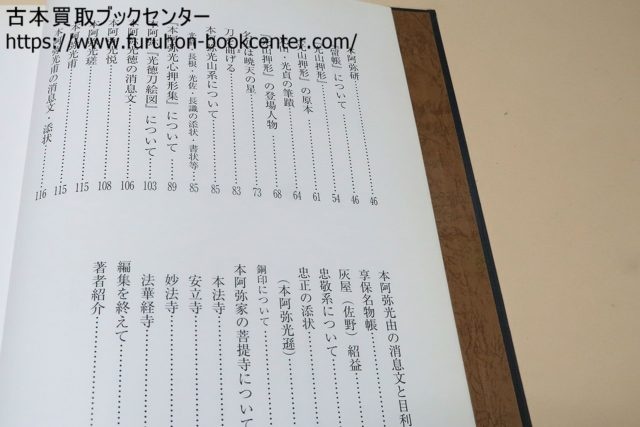 古本買取ブックセンター
https://www.furuhon-bookcenter.com/
本阿弥研 46
46
について 54
光山押形』 61
山押形』の原本 64
・光貞の筆蹟 68
山押形』の登場人物 73
名物は暁天の星
刀剣曲げる 83
本阿弥光山系について 85
光瑳・長根・光佐・長識の添状・書状等 85
本阿弥光心押形集』について 89
本阿弥『光徳刀絵図』について 103
本阿弥光徳の消息文 106
本阿弥光悦 108
本阿弥光瑳 115
本阿弥光甫 115
本阿弥光甫の消息文・添状 116
本阿弥光由の消息文と目利
享保名物帳
灰屋(佐野)紹益
忠敬系について
忠正の添状
(本阿弥光遜)
銅印について
本阿弥家の菩提寺につい
本法寺
安立寺
妙法寺
法華経寺
編集を終えて
著者紹介